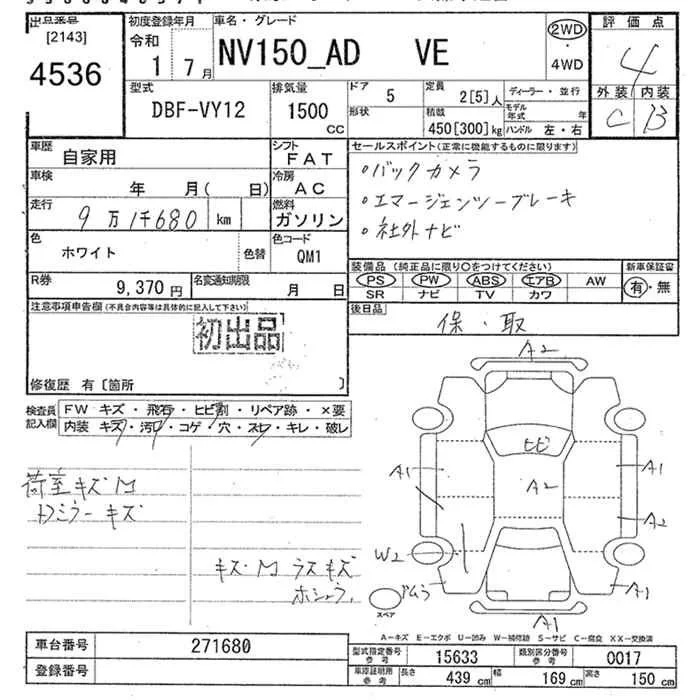 出品番号
[2143]
4536
初度登録年月
令和
1 7月
車名・グレード
NV150_AD VE
2WD
・
4WD
評価点
4
外装 内装
C B
型式
DBF-VY12
排気量
1500
CC
ドア
5
定員
2[5]人
ディーラー・並行
形状
積載
450[300]kg
モデル年式 年
ハンドル 左・右
車歴
自家用
シフト
FAT
車検
年 月( 日)
冷房
AC
走行
9万1千680 km
燃料
ガソリン
色
ホワイト
色替
色コード
QM1
R券
9,370円
名変通知期限
月 日
セールスポイント(正常に機能するものに限ります)
・バックカメラ
・エマージェンツーブレーキ
・社外ナビ
装備品(純正品に限り○をつけてください)
新車保証書
PS PW ABS エアB AW
有・無
SR ナビ TV カワ
後日品
保・取
注意事項申告欄(不具合内容等は具体的に記入して下さい)
初出品
修復歴 有〔箇所 〕
検査員記入欄
FW キズ・飛石・ヒビ割・リペア跡・×要
内装 キズ・汚れ・コゲ・穴・スレ・キレ・破レ
荷室キズM
キズ
キズM ラスキズ
A2
ヒビ
A1
A2
A1
A2
W2
A1
A1
スペア
A-キズ E-エクボ U-凹み W-補修跡 S-サビ C-腐食 XX-交換済
車台番号
271680
登録番号
型式指定番号 参考
15633
類別区分番号 参考
0017
車庫証明用 参考
長さ 439 cm 幅 169 cm 高さ 150 cm